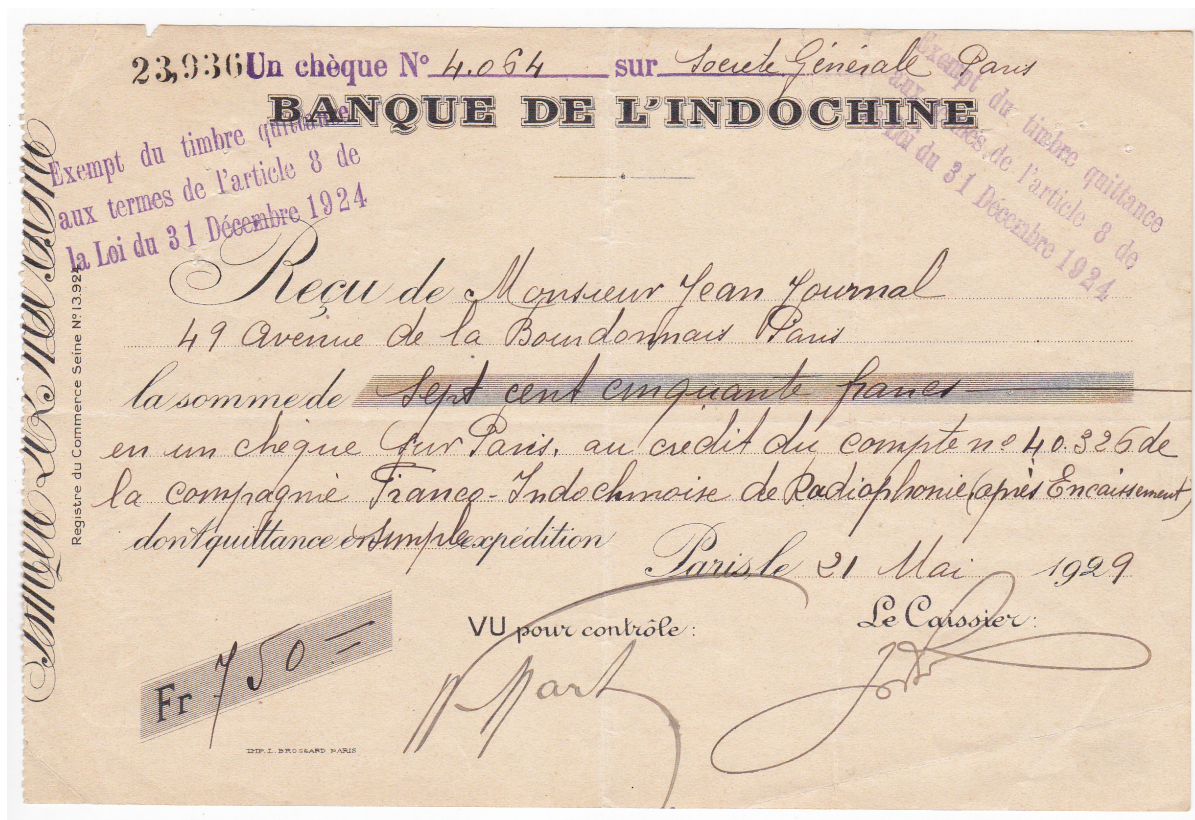 23,936 Un chèque Nº 4.064 sur Société Générale Paris
BANQUE DE L'INDOCHINE
Exempt du timbre quittance
aux termes de l'article 8 de
la Loi du 31 Décembre 1924
Exempt du timbre quittance
aux termes de l'article 8 de
la Loi du 31 Décembre 1924
Reçu de Monsieur Jean Journal
49 Avenue de la Bourdonnais Paris
la somme de sept cent cinquante francs
en un chèque sur Paris. au crédit du compte nº 40.326 de
la compagnie Franco-Indochinoise de Radiophonie (après Encaissement)
dont quittance en simple expédition
Paris, le 21 Mai 1929
VU pour contrôle:
Le Caissier:
Fr 750 =
IMP. L. BROSSARD PARIS
Registre du Commerce Seine Nº 13.924